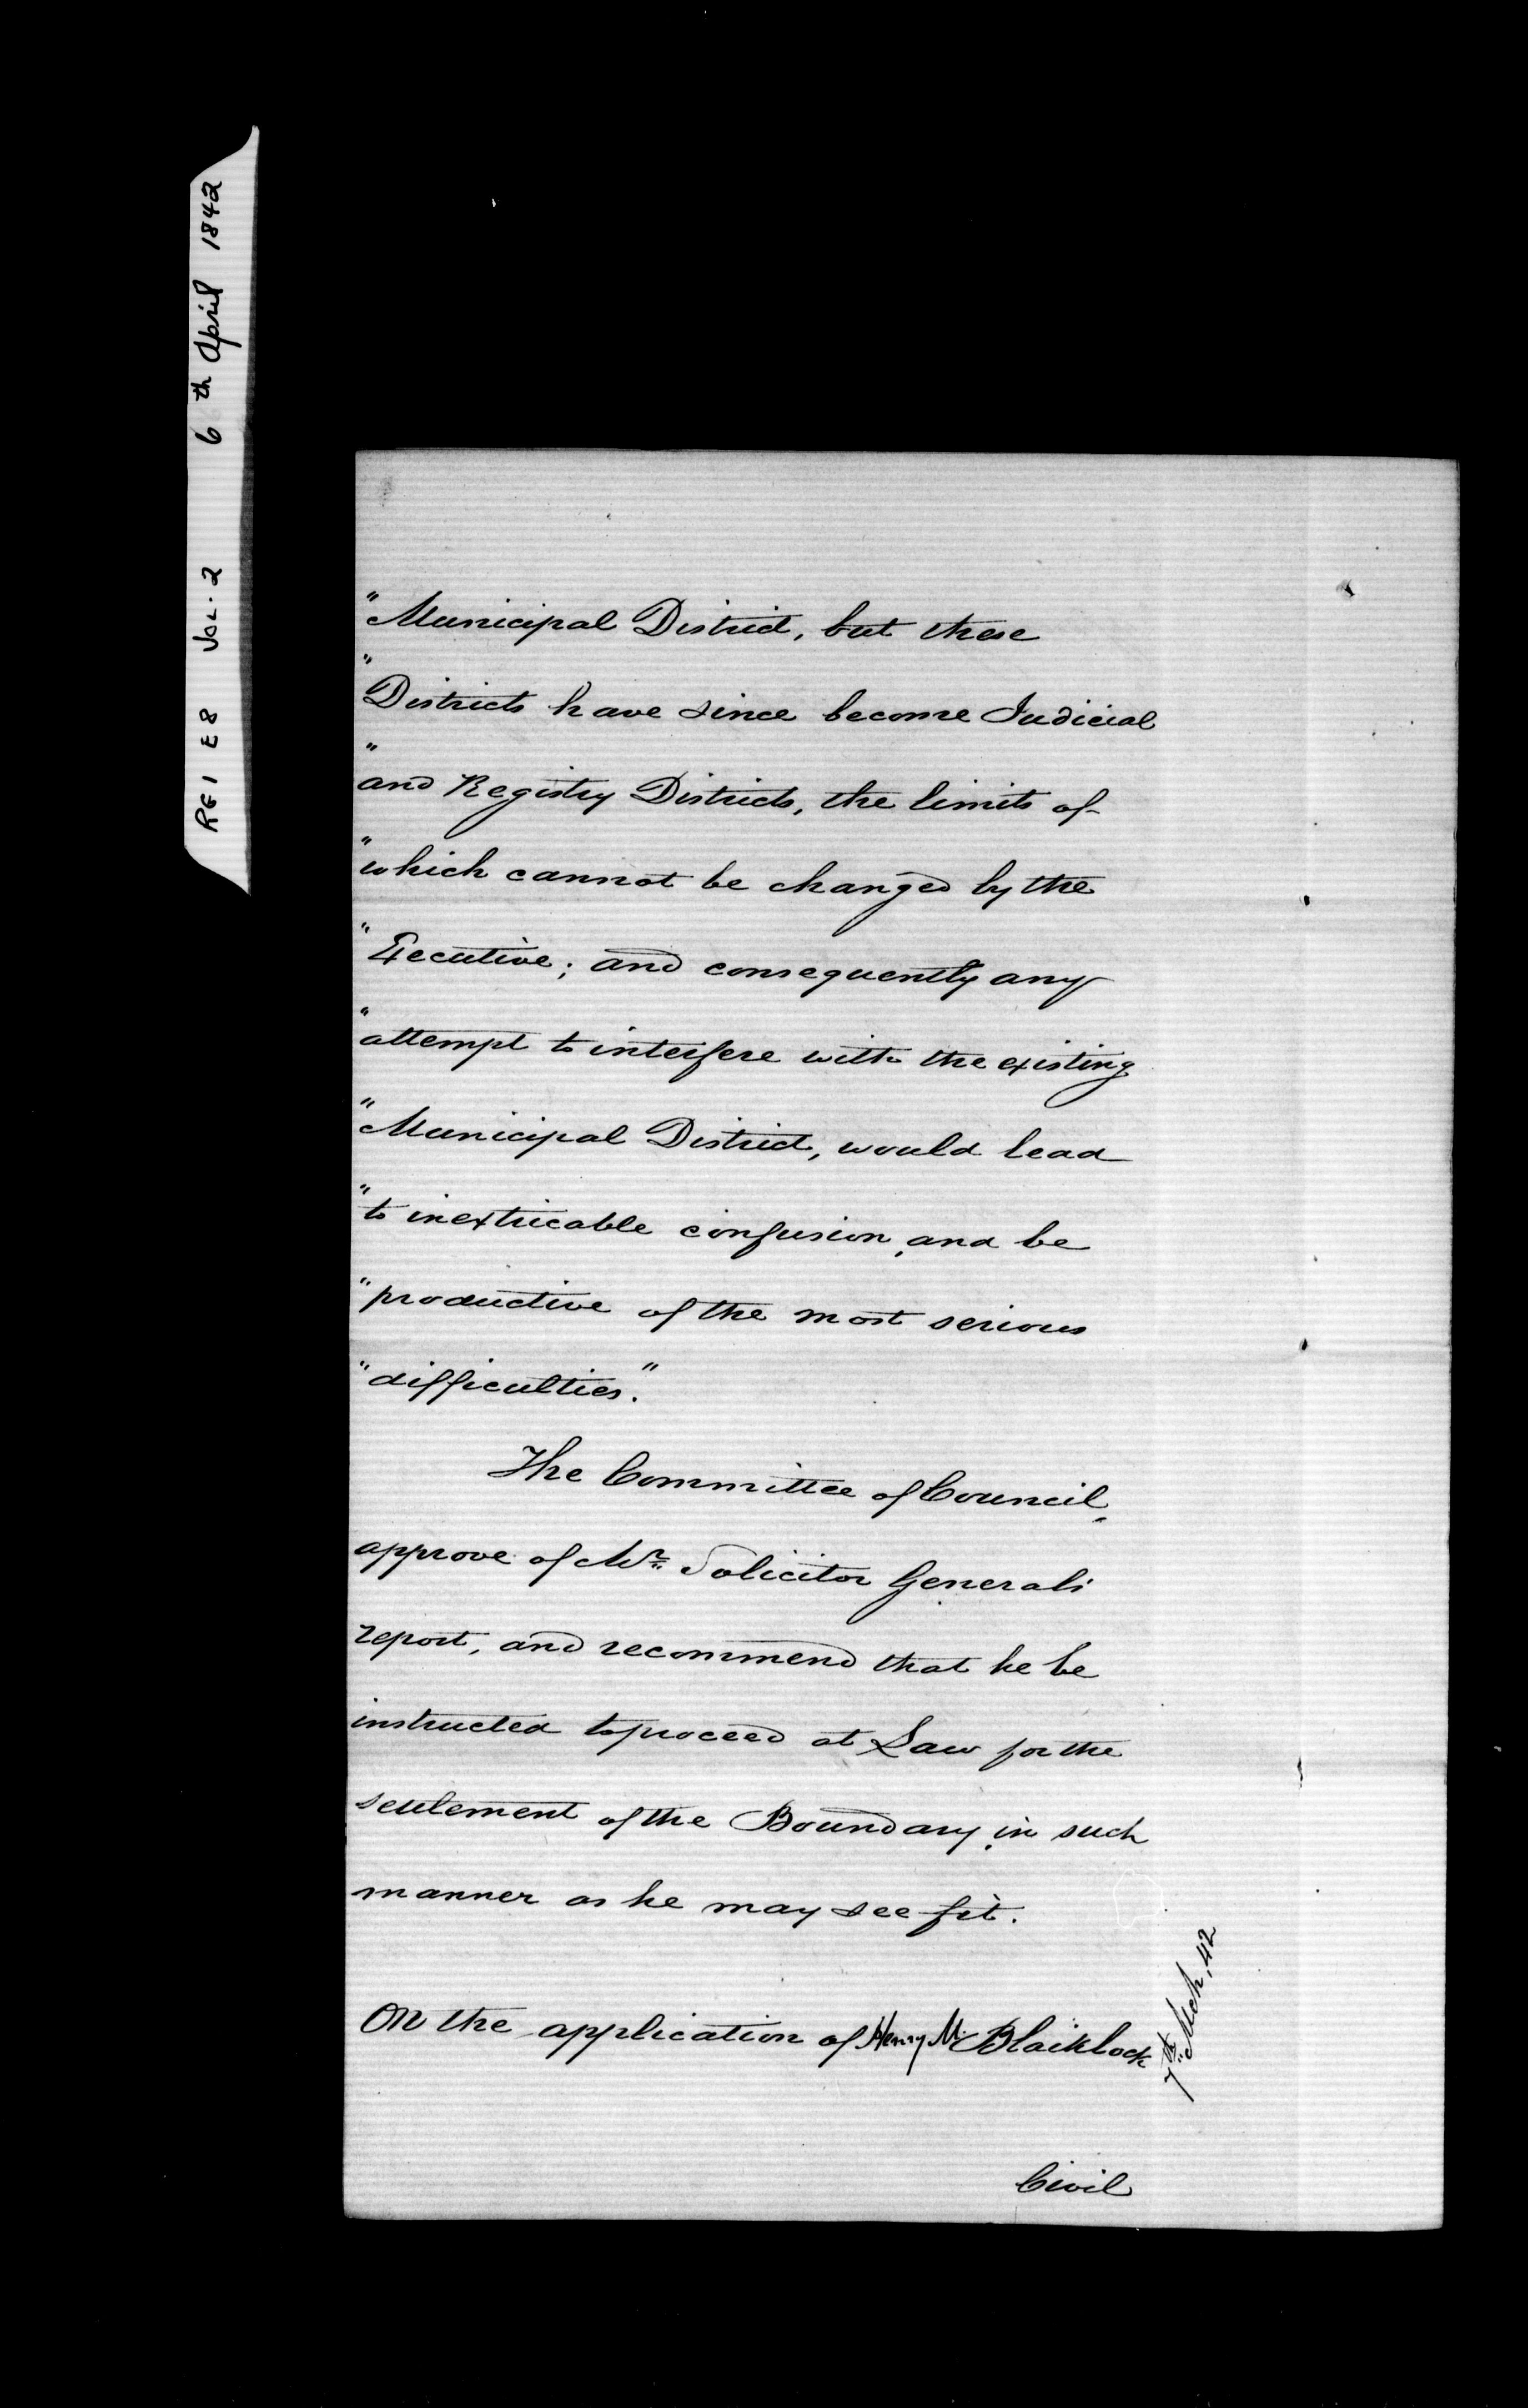 RG1 E8 VOL. 2 6th April 1842
"Municipal District, but these
"Districts have since become Judicial
"and Registry Districts, the limits of
"which cannot be changed by the
"Executive; and consequently any
"attempt to interfere with the existing
"Municipal District, would lead
"to inextricable confusion, and be
"productive of the most serious
"difficulties."
The Committee of Council,
approve of Mr. Solicitor Generals
report, and recommend that he be
instructed to proceed at Law for the
settlement of the Boundary, in such
manner as he may see fit.
On the application of Henry M. Blaiklock
7th. Mch, 42
Civil